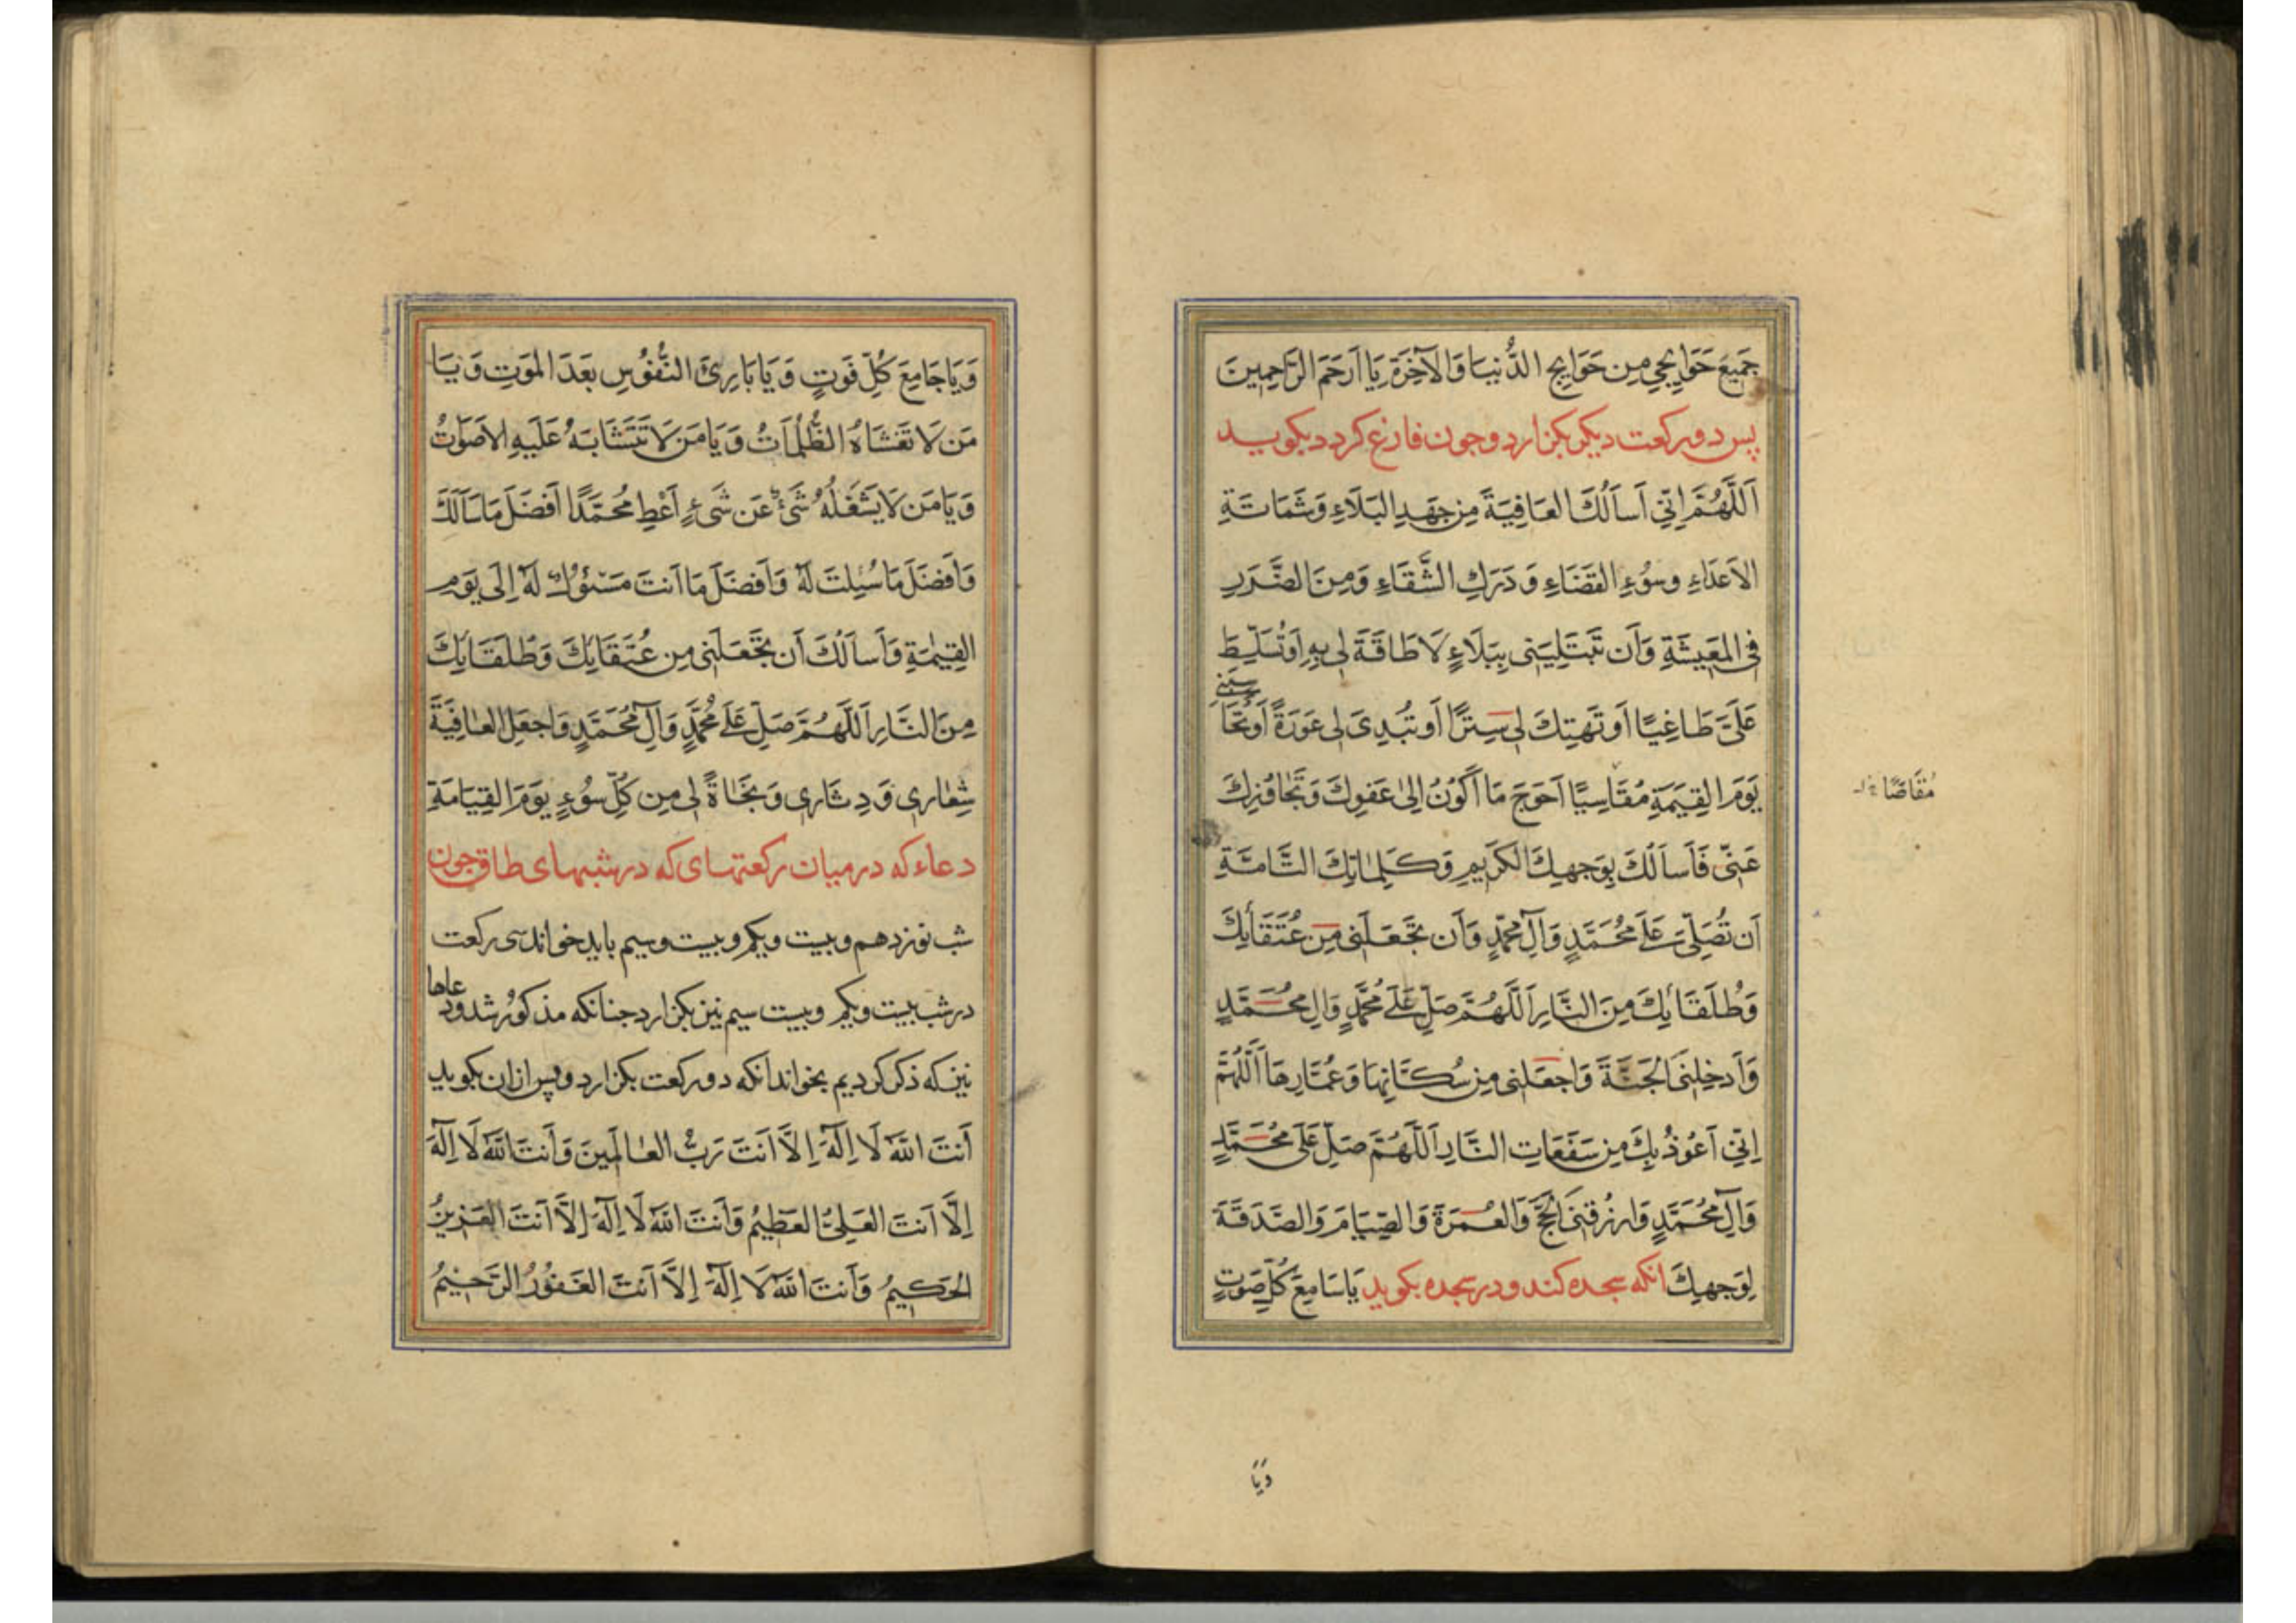 جَمِيعَ حَوَايِجِي مِن حَوَايِجِ الدُّنيَا وَالآخِرَةِ يَا اَرحَمَ الرَّاحِمِينَ
پس دو ركعت ديكر بكزارد و جون فارغ كردد بكويد
اَللَّهُمَّ اِنِّي اَسأَلُكَ العَافِيَةَ مِن جَهدِ البَلَاءِ وَشَمَاتَةِ
الاَعدَاءِ وسُوُءِ القَضَاءِ وَ دَرَكِ الشَّقَاءِ وَمِنَ الضَّرَرِ
فِى المَعِيشَةِ وَاَن تَبتَلِيَنِى بِبَلَاءٍ لَا طَاقَةَ لِى بِهِ اَو تُسَلِّطَ
عَلَىَّ طَاغِيًا اَو تَهتِكَ لِى سِترًا اَو تُبدِىَ لِى عَورَةً اَو تُحَا
سبنى
يَومَ القِيمَةِ مُقَاسِيًا اَحوَجَ مَا اَكُونُ اِلىٰ عَفوِكَ وَتَجَاوُزِكَ
عَنِّى فَاَسأَلُكَ بِوَجهِكَ الكَرِيمِ وَكَلِمَاتِكَ التَّامَّةِ
اَن تُصَلِّىَ عَلَى مُحَمَّدٍ وَآلِ مُحَمَّدٍ وَاَن تَجعَلَنِى مِن عُتَقَائِكَ
وَطُلَقَائِكَ مِنَ النَّارِ اَللَّهُمَّ صَلِّ عَلَى مُحَمَّدٍ وَالِ مُحَمَّدٍ
وَاَدخِلنِىَ الجَنَّةَ وَاجعَلنِى مِن سُكَّانِهَا وَعُمَّارِهَا اَللَّهُمَّ
اِنِّي اَعُوذُ بِكَ مِن سَفَعَاتِ النَّارِ اَللَّهُمَّ صَلِّ عَلَى مُحَمَّدٍ
وَآلِ مُحَمَّدٍ وَارزُقنِىَ الحَجَّ وَالعُمرَةَ وَالصِّيَامَ وَالصَّدَقَةَ
لِوَجهِكَ انكه سجده كند و در سجده بكويد يَا سَامِعَ كُلِّ صَوتٍ
مُقَاصًّا
وَيَا
وَيَا جَامِعَ كُلِّ فَوتٍ وَيَا بَارِئَ النُّفُوسِ بَعدَ المَوتِ وَيَا
مَن لَا تَغشَاهُ الظُّلُمَاتُ وَيَا مَن لَا تَتَشَابَهُ عَلَيهِ الاَصوَاتُ
وَيَا مَن لَا يَشغَلُهُ شَىءٌ عَن شَىءٍ اَعْطِ مُحَمَّدًا اَفضَلَ مَا سَاَلَكَ
وَاَفضَلَ مَا سُئِلتَ لَهُ وَاَفضَلَ مَا اَنتَ مَسئُولٌ لَهُ اِلَى يَومِ
القِيٰمَةِ وَاَسأَلُكَ اَن تَجعَلَنِى مِن عُتَقَائِكَ وَطُلَقَائِكَ
مِنَ النَّارِ اَللَّهُمَّ صَلِّ عَلَى مُحَمَّدٍ وَآلِ مُحَمَّدٍ وَاجعَلِ العَافِيَةَ
شِعَارِى وَ دِثَارِى وَنَجَاةً لِى مِن كُلِّ سُوُءٍ يَومَ القِيَامَةِ
دعاء كه در ميان ركعتهاى كه در شبهاى طاق جون
شب نوزدهم و بيست ويكم و بيست وسيم بايد خواند سى ركعت
در شب بيست ويكم وبيست سيم نيز بكزارد جنانكه مذكور شد ود
عاها
نيز كه ذكر كرديم بخواند انكه دو ركعت بكزارد و پس ازان بكويد
اَنتَ اللّهُ لَا اِلَهَ اِلَّا اَنتَ رَبُّ العَالَمِينَ وَاَنتَ اللّهُ لَا اِلَهَ
اِلَّا اَنتَ العَلِىُّ العَظِيمُ وَاَنتَ اللّهُ لَا اِلَهَ اِلَّا اَنتَ العَزِيزُ
الحَكِيمُ وَاَنتَ اللّهُ لَا اِلَهَ اِلَّا اَنتَ الغَفُورُ الرَّحِيمُ